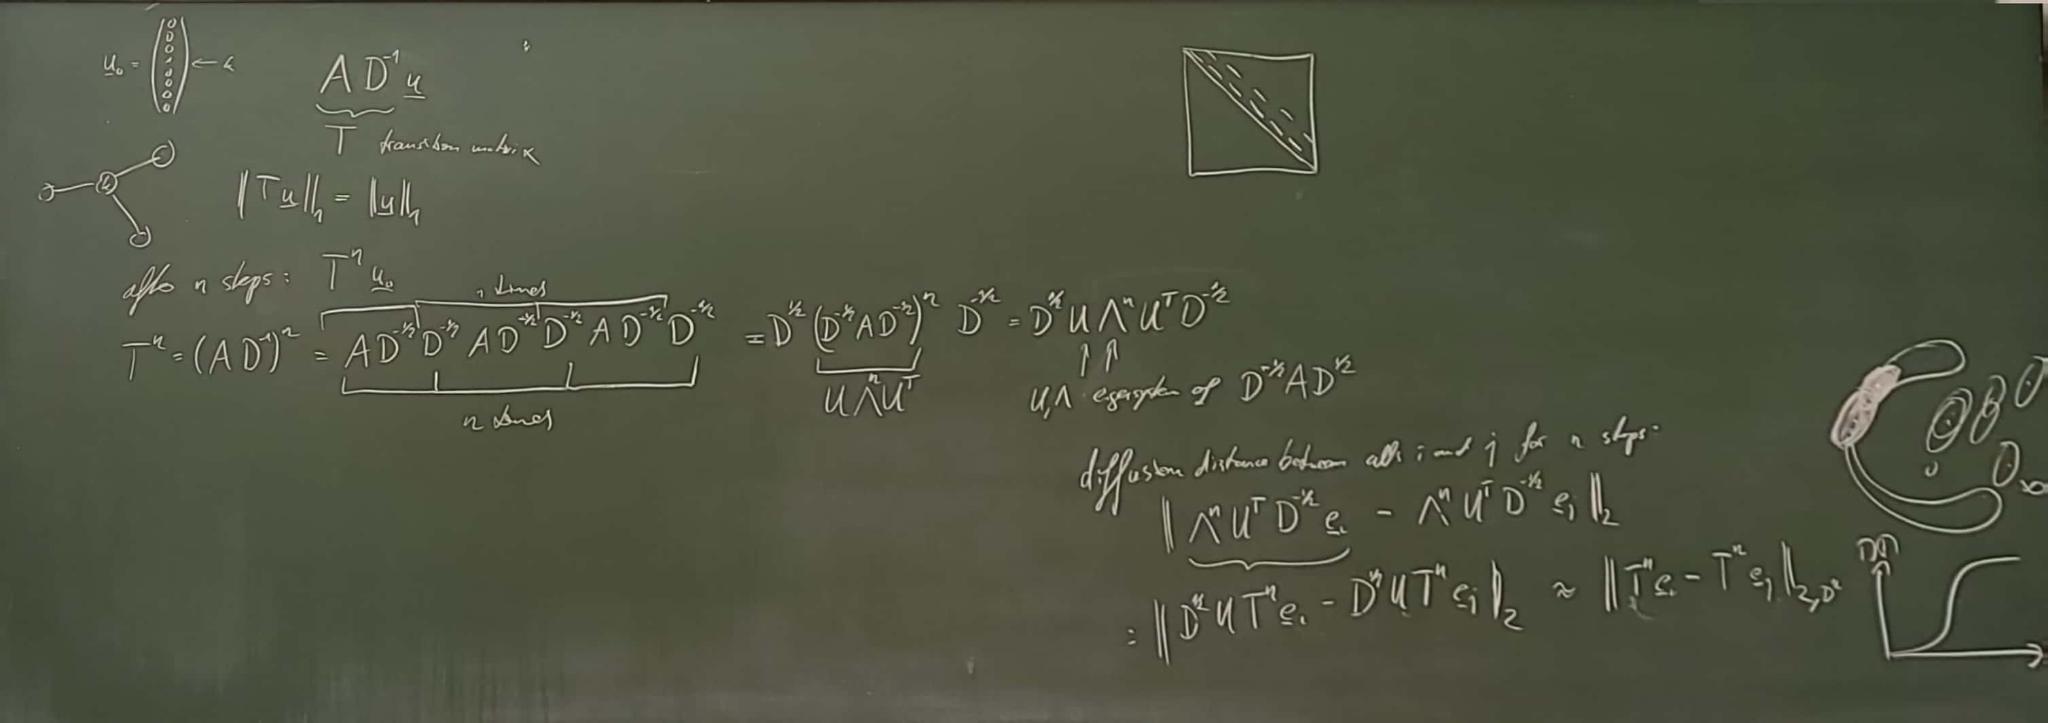 u₀ = (0 0 0 1 0 0 0 0) ← k
A D⁻¹ u
T transition matrix
k
‖Tu‖₁ = ‖u‖₁
after n steps: Tⁿ u₀
n times
Tⁿ = (A D⁻¹)ⁿ = A D^{-1/2} D^{-1/2} A D^{-1/2} D^{-1/2} A D^{-1/2} D^{-1/2} = D^{1/2} (D^{-1/2} A D^{-1/2})ⁿ D^{-1/2} = D^{1/2} U Λⁿ Uᵀ D^{-1/2}
n times
U Λⁿ Uᵀ
U, Λ eigensystem of D^{-1/2} A D^{1/2}
diffusion distance between i and j for n steps:
‖ Λⁿ Uᵀ D^{-1/2} e_i - Λⁿ Uᵀ D^{-1/2} e_j ‖₂
= ‖ D^{1/2} U Tⁿ e_i - D^{1/2} U Tⁿ e_j ‖₂ ≈ ‖ Tⁿ e_i - Tⁿ e_j ‖